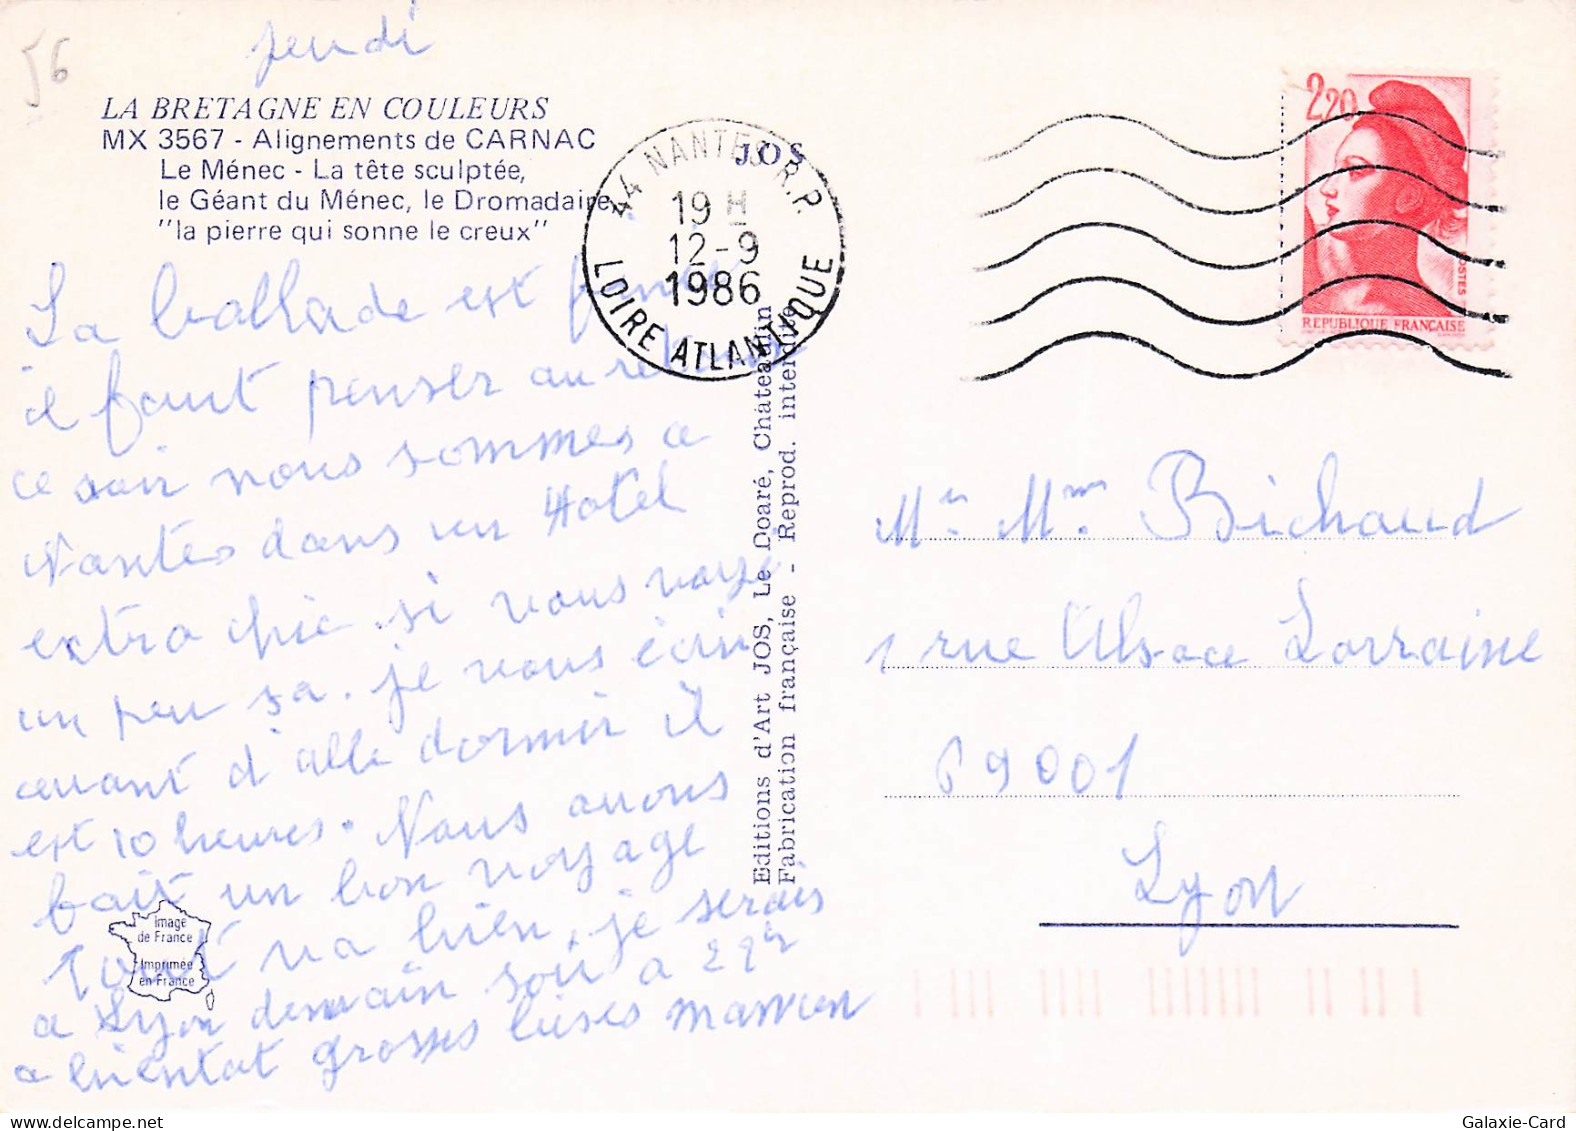 56
jeudi
LA BRETAGNE EN COULEURS
MX 3567 - Alignements de CARNAC
Le Ménec - La tête sculptée,
le Géant du Ménec, le Dromadaire,
"la pierre qui sonne le creux"
La ballade est finie
il faut penser au retour
ce soir nous sommes a
Nantes dans un Hotel
extra chic. si vous voyé
un peu sa. je vous écris
avant d'allé dormir il
est 10 heures. Nous avons
fait un bon voyage
Tout va bien, je serais
a Lyon demain soir a
a bientot grosses bises maman
Image
de France
Imprimée
en France
44 NANTES R.P.
19 H
12-9
1986
LOIRE ATLANTIQUE
JOS
Editions d'Art JOS, Le Doaré, Châteaulin
Fabrication française - Reprod. interdite
2,20
POSTES
REPUBLIQUE FRANÇAISE
Mr Mme Bichaud
1 rue Alsace Lorraine
69001
Lyon
Galaxie-Card